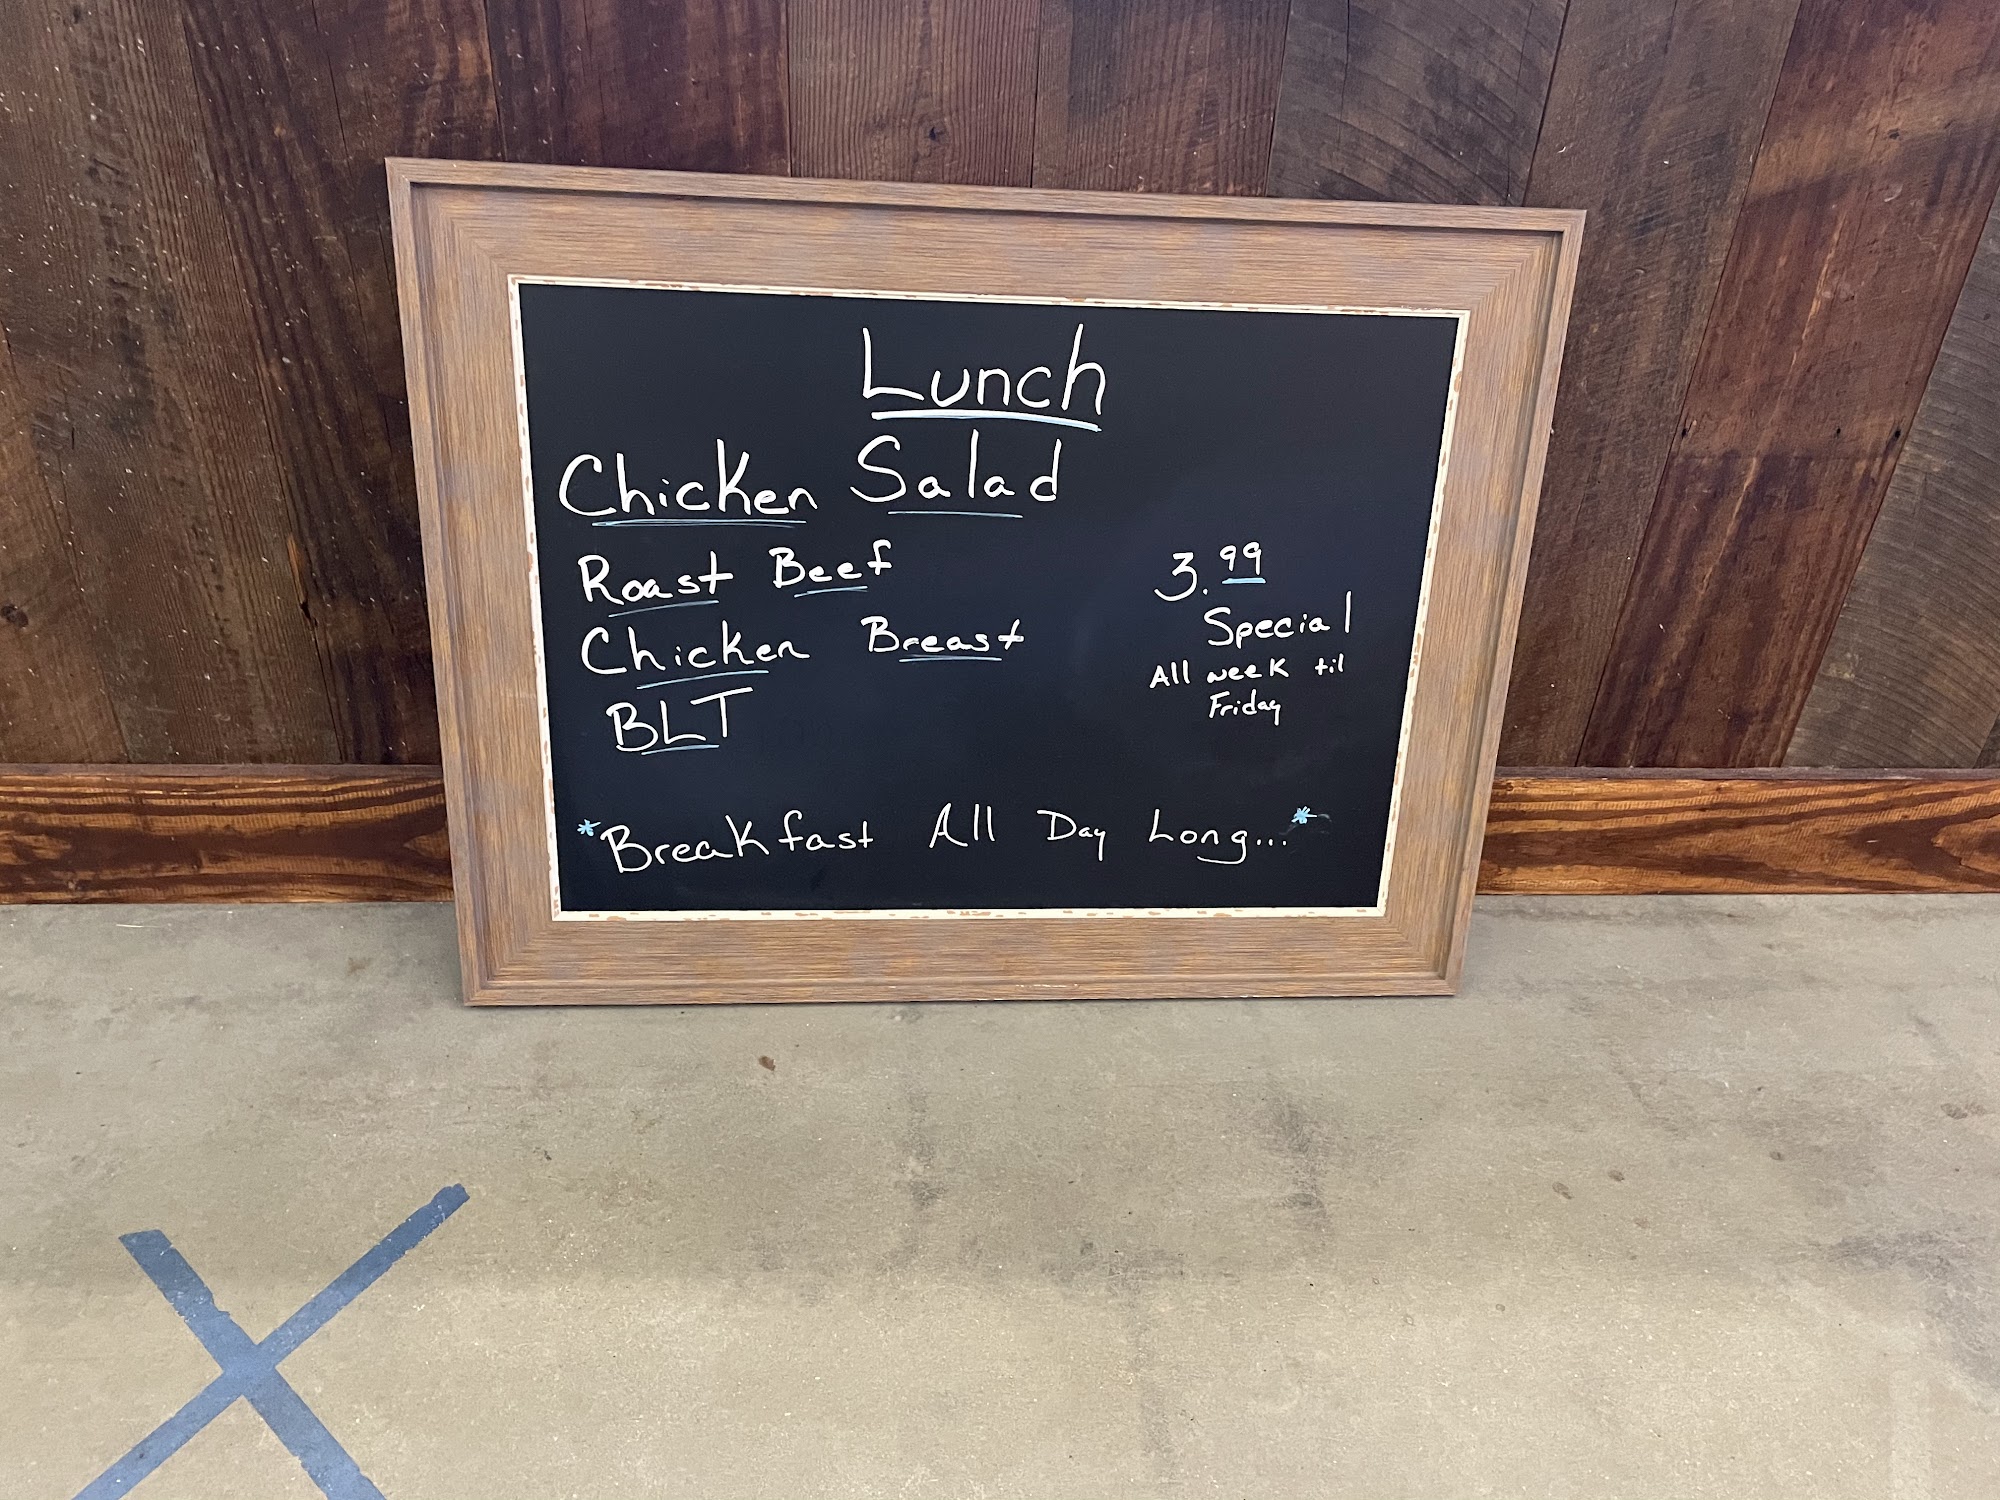 Lunch
Chicken Salad
Roast Beef
Chicken Breast
BLT
3.99
Special
All week til
Friday
*Breakfast All Day Long...*